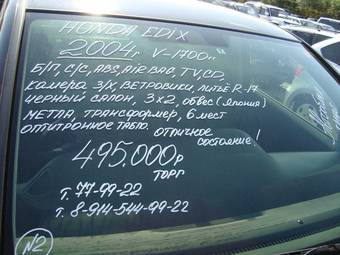 HONDA EDIX
2004г V-1700сс
Б/П, С/С, ABS, AIRBAG, TV, CD,
КАМЕРА З/Х, ВЕТРОВИКИ, ЛИТЬЁ R-17
ЧЕРНЫЙ САЛОН, 3х2, ОБВЕС (ЯПОНИЯ)
МЕТЛА, ТРАНСФОРМЕР, 6 МЕСТ
ОПТИТРОННОЕ ТАБЛО. ОТЛИЧНОЕ
СОСТОЯНИЕ!
495.000р
ТОРГ
т. 77-99-22
т. 8-914-544-99-22
N2